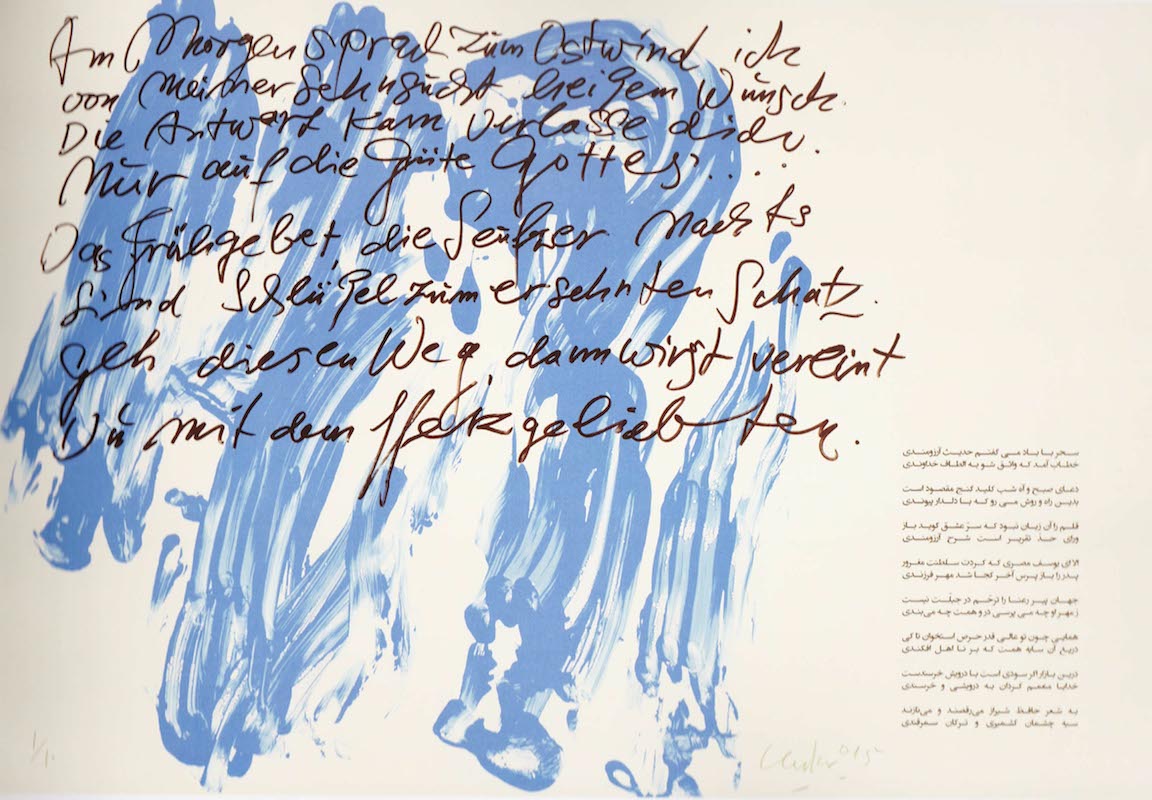 Am Morgen sprach zum Ostwind ich
von meiner Sehnsucht heißem Wunsch.
Die Antwort kam verlasse dich.
Nur auf die Güte Gottes...
Das Frühgebet, die Seufzer nachts
sind Schlüßel zum ersehnten Schatz.
geh diesen Weg, dann wirst vereint
Du mit dem Herzgeliebten.
سحر با باد می گفتم حدیث آرزومندی
خطاب آمد که واثق شو به الطاف خداوندی
دعای صبح و آه شب کلید گنج مقصود است
بدین راه و روش می رو که با دلدار پیوندی
قلم را آن زبان نبود که سرّ عشق گوید باز
ورای حدّ تقریر است شرح آرزومندی
الا ای یوسف مصری که کردت سلطنت مغرور
پدر را باز پرس آخر کجا شد مهر فرزندی
جهان پیر رعنا را ترحّم در جبلّت نیست
ز مهر او چه می پرسی در او همت چه می‌بندی
همایی چون تو عالی قدر حرص استخوان تا کی
دریغ آن سایه همت که بر نا اهل افکندی
درین بازار اگر سودی است با درویش خرسندست
خدایا منعمم گردان به درویشی و خرسندی
به شعر حافظ شیراز می‌رقصند و می‌نازند
سیه چشمان کشمیری و ترکان سمرقندی